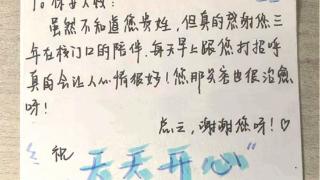 To 保安大叔：
虽然不知道您贵姓，但真的感谢您三
年在校门口的陪伴。每天早上跟您打招呼
真的会让人心情很好！您那笑容也很治愈
呀！
总之，谢谢您呀！♡
祝
天天开心"